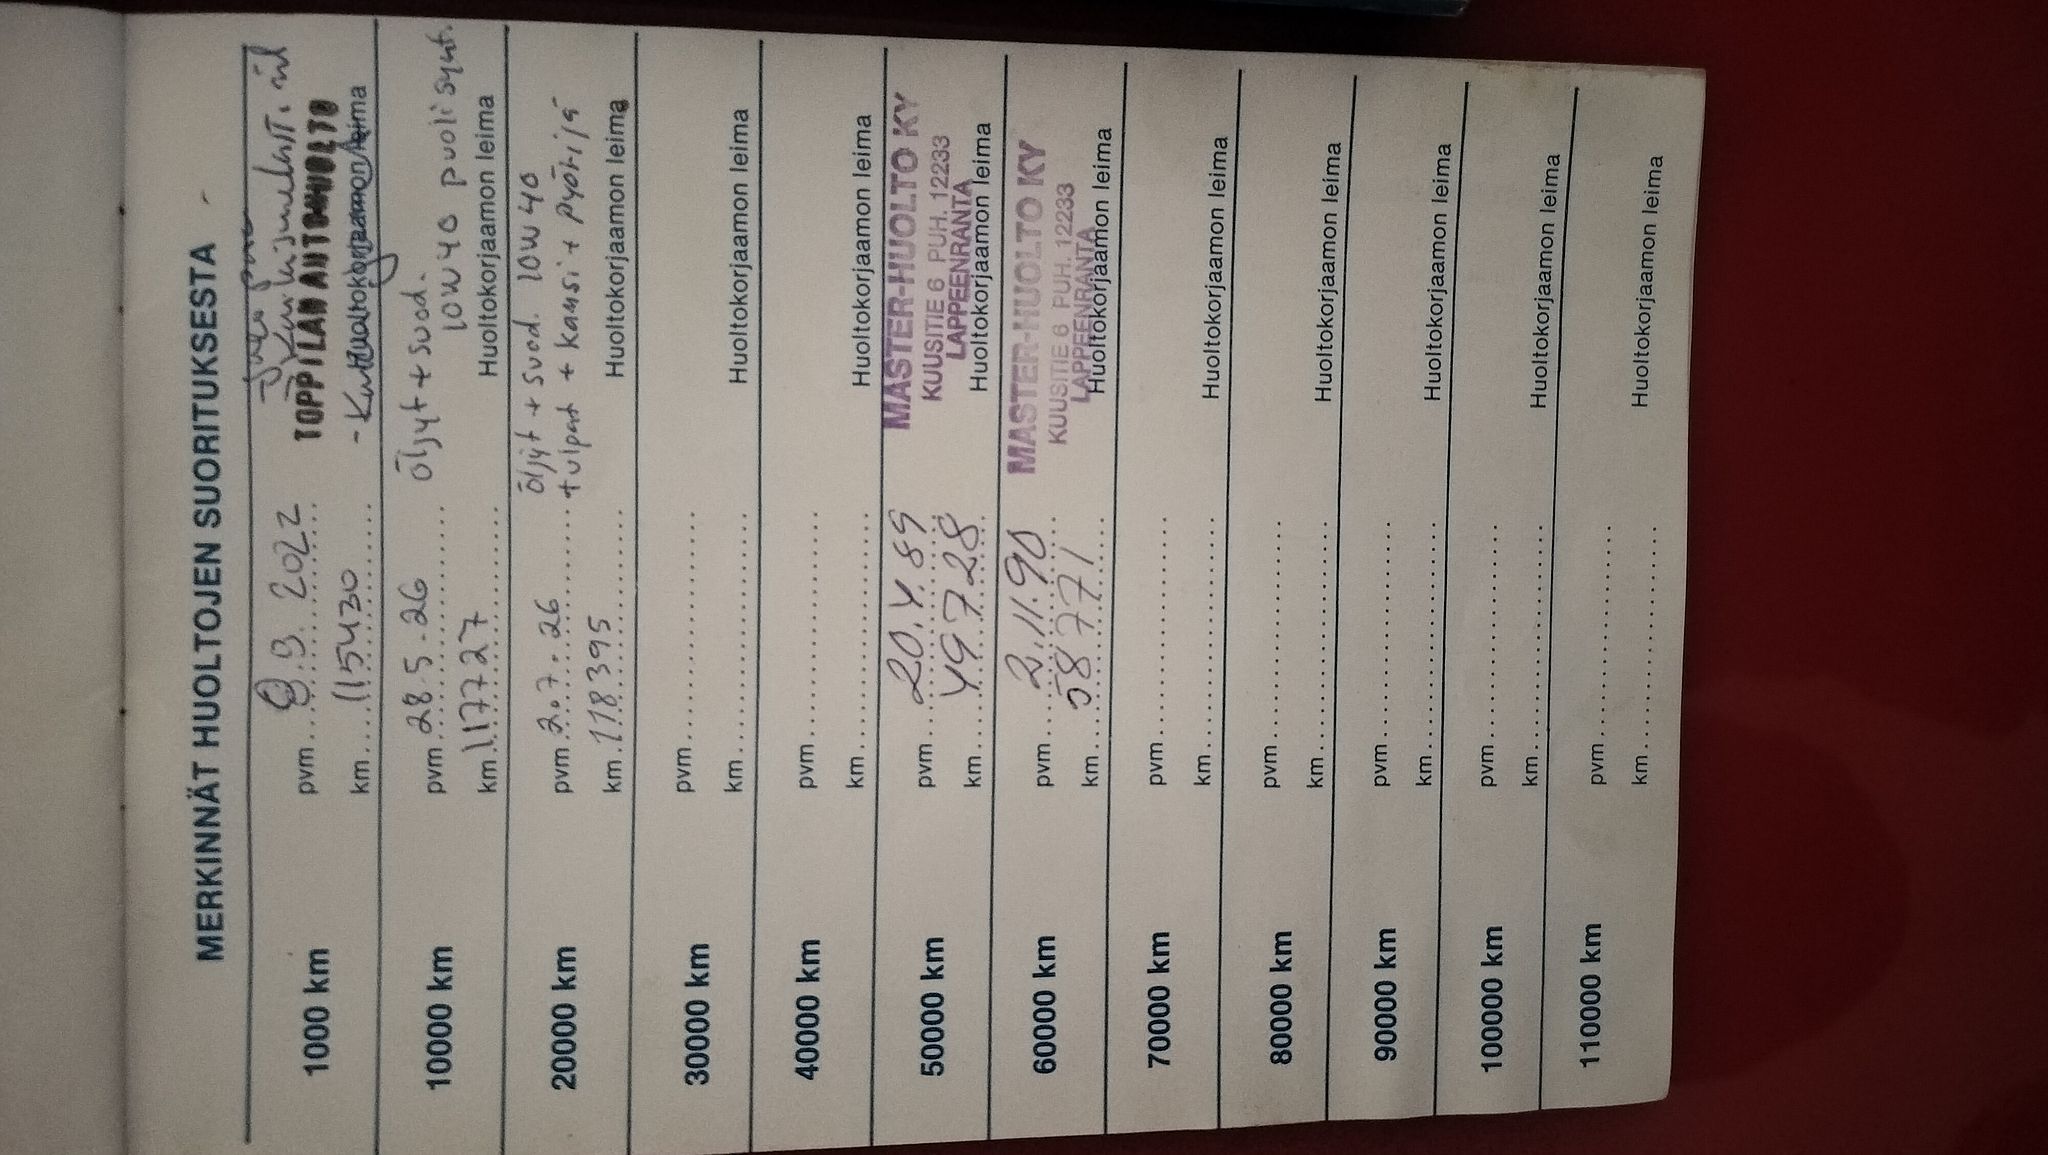 MERKINNÄT HUOLTOJEN SUORITUKSESTA
1000 km
pvm 9.9.2022
km 115430
TOPPILAN AUTOHUOLTO
Huoltokorjaamon leima
10000 km
pvm 28.5.26
km 117727
Öljyt + suod.
10W40 puolisynt.
Huoltokorjaamon leima
20000 km
pvm 2.7.26
km 118395
öljyt + suod. 10W40
+ tulpat + kansi + pyörijä
Huoltokorjaamon leima
30000 km
pvm
km
Huoltokorjaamon leima
40000 km
pvm
km
Huoltokorjaamon leima
50000 km
pvm 20.4.89
km 49728
MASTER-HUOLTO KY
KUUSITIE 6 PUH. 12233
LAPPEENRANTA
Huoltokorjaamon leima
60000 km
pvm 2.11.90
km 58771
MASTER-HUOLTO KY
KUUSITIE 6 PUH. 12233
LAPPEENRANTA
Huoltokorjaamon leima
70000 km
pvm
km
Huoltokorjaamon leima
80000 km
pvm
km
Huoltokorjaamon leima
90000 km
pvm
km
Huoltokorjaamon leima
100000 km
pvm
km
Huoltokorjaamon leima
110000 km
pvm
km
Huoltokorjaamon leima